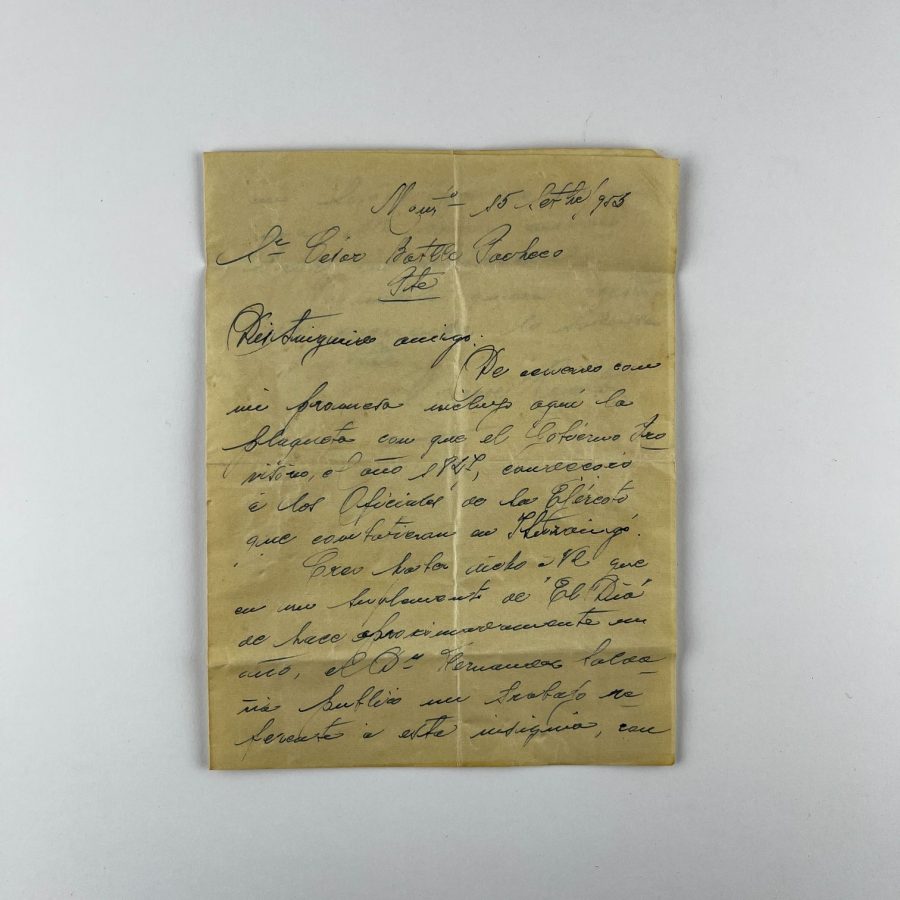 Montº 15 Setbe/953
Sr César Batlle Pacheco
Pte
Distinguido amigo:
De acuerdo con
mi promesa incluyo aquí la
plaqueta con que el Gobierno Pro
visorio, el año, concedió
á los Oficiales de la Ejército
que combatieron en Ituzaingó.
Creo haber dicho á Vd que
en un suplemento de "El Día"
de hace aproximadamente un
año, el Dr Fernandez Salda
ña publicó un trabajo re-
ferente á esta insignia, con